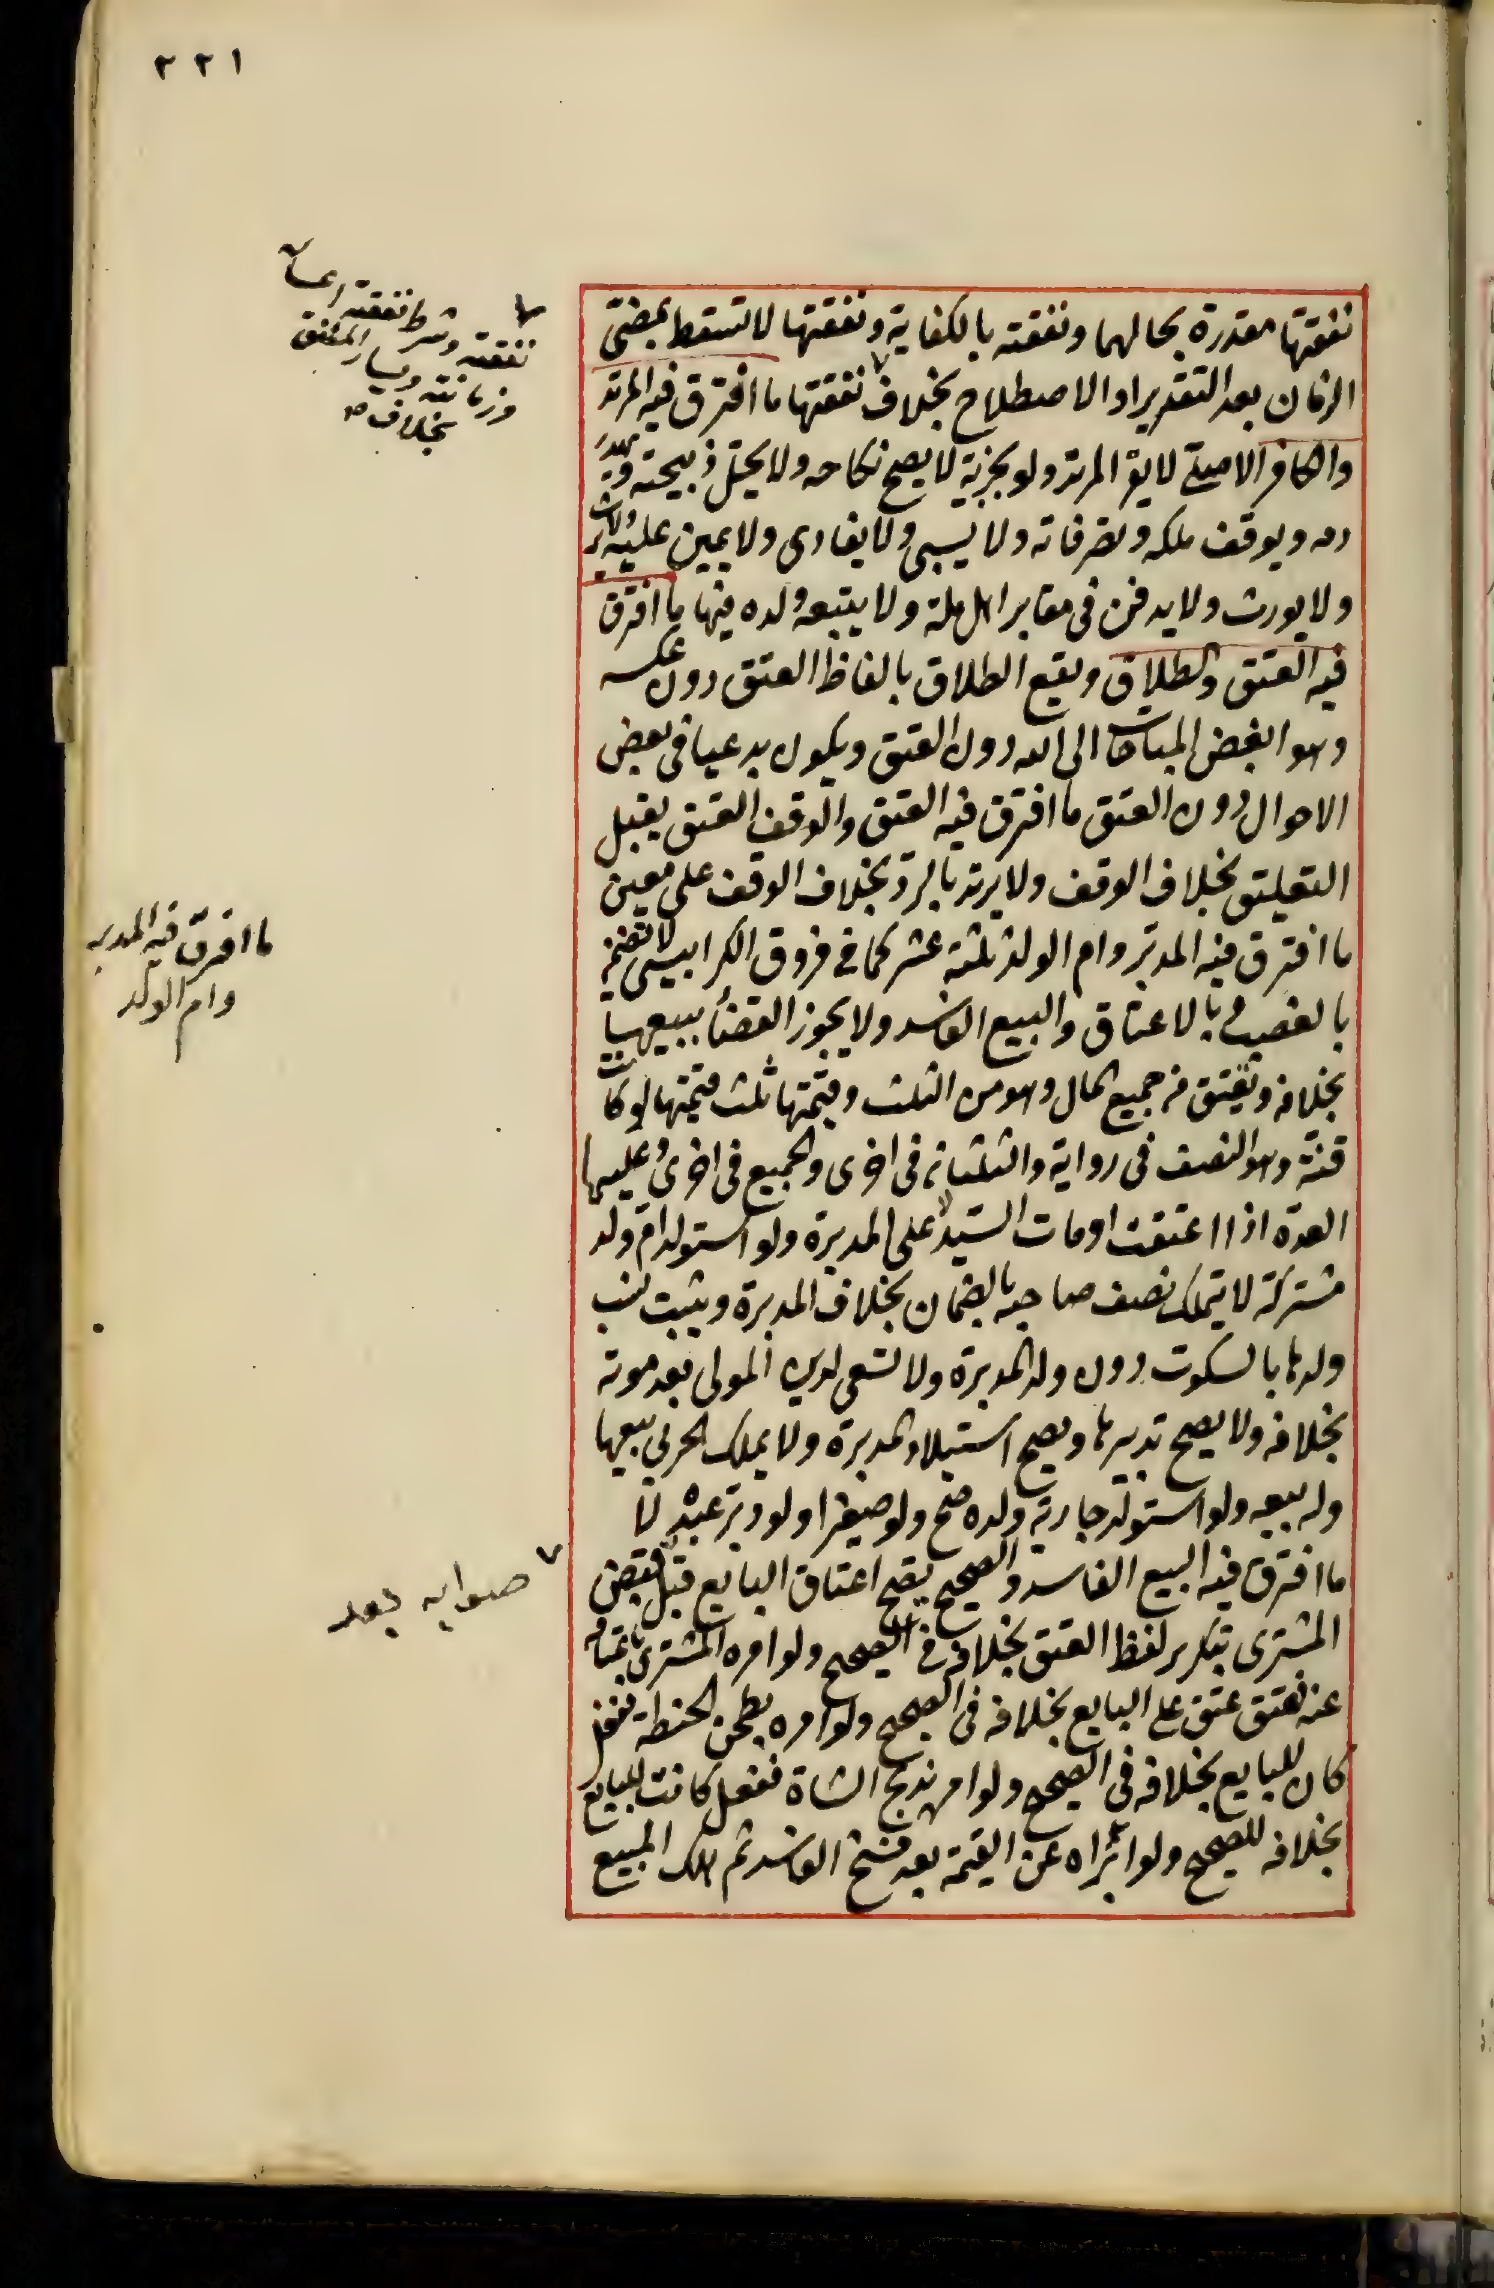 ٢٢١
نفقتها مقدرة بحالهما ونفقته بالكفاية ونفقتها لا تسقط بمضى
الزمان بعد التقدير او الاصطلاح بخلاف نفقتها ما افترق فيه المرتد
والكافر الاصلى لا يقر المرتد ولو بجزية لا يصح نكاحه ولا يحل ذبيحته ويهدر
دمه ويوقف ملكه وتصرفاته ولا يسبى ولا يفادى ولا يمن عليه ولا يرث
ولا يورث ولا يدفن فى مقابر اهل ملة ولا يتبعه ولده فيها ما افترق
فيه العتق والطلاق ويقع الطلاق بالفاظ العتق دون عكسه
وهو ابغض المباحات الى الله دون العتق ويكون بدعيا فى بعض
الاحوال دون العتق ما افترق فيه العتق والوقف العتق يقبل
التعليق بخلاف الوقف ولا يرتد بالرد بخلاف الوقف على معين
ما افترق فيه المدبر وام الولد ثلثة عشر كما فى فروق الكرابيسى لا تضمن
بالغصب وبالاعتاق والبيع الفاسد ولا يجوز القضأ ببيعها
بخلافه وتعتق من جميع المال وهو من الثلث وقيمتها ثلث قيمتها لو كانت
قنة وهو النصف فى رواية والثلثان فى اخرى والجميع فى اخرى وعليها
العدة اذا اعتقت او مات السيد لا على المدبرة ولو استولد ام ولد
مشتركة لا يتملك نصف صاحبه بالضمان بخلاف المدبرة ويثبت نسب
ولدها بالسكوت دون ولد المدبرة ولا تسعى لدين المولى بعد موته
بخلافه ولا يصح تدبيرها ويصح استيلاد المدبرة ولا يملك الحربى بيعها
وله بيعه ولو استولد جارية ولده صح ولو صغيرا ولو دبر عبده لا
ما افترق فيه البيع الفاسد والصحيح يصح اعتاق البايع قبل قبض
المشترى بتكرير لفظ العتق بخلافه فى الصحيح ولو امره المشترى باعتاقه
عنه فعتق عتق على البايع بخلافه فى الصحيح ولو امره بطحن الحنطة ففعل
كان للبايع بخلافه فى الصحيح ولو امره بذبح الشاة ففعل كانت للبايع
بخلافه للصحيح ولو ابراه عن القيمة بعد فسخ الفاسد ثم هلك المبيع
نفقته وشرط نفقته اعساره
وزمانته ويسار المنفق
بخلاف صح
ما افترق فيه المدبر
وام الولد
صوابه بعد